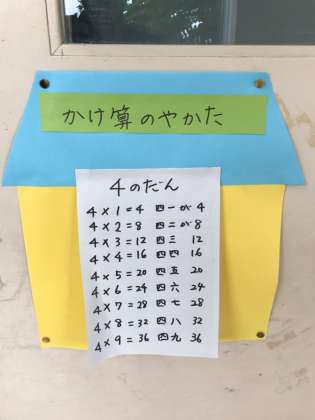 かけ算のやかた
4のだん
4×1=4 四一が 4
4×2=8 四二が 8
4×3=12 四三 12
4×4=16 四四 16
4×5=20 四五 20
4×6=24 四六 24
4×7=28 四七 28
4×8=32 四八 32
4×9=36 四九 36